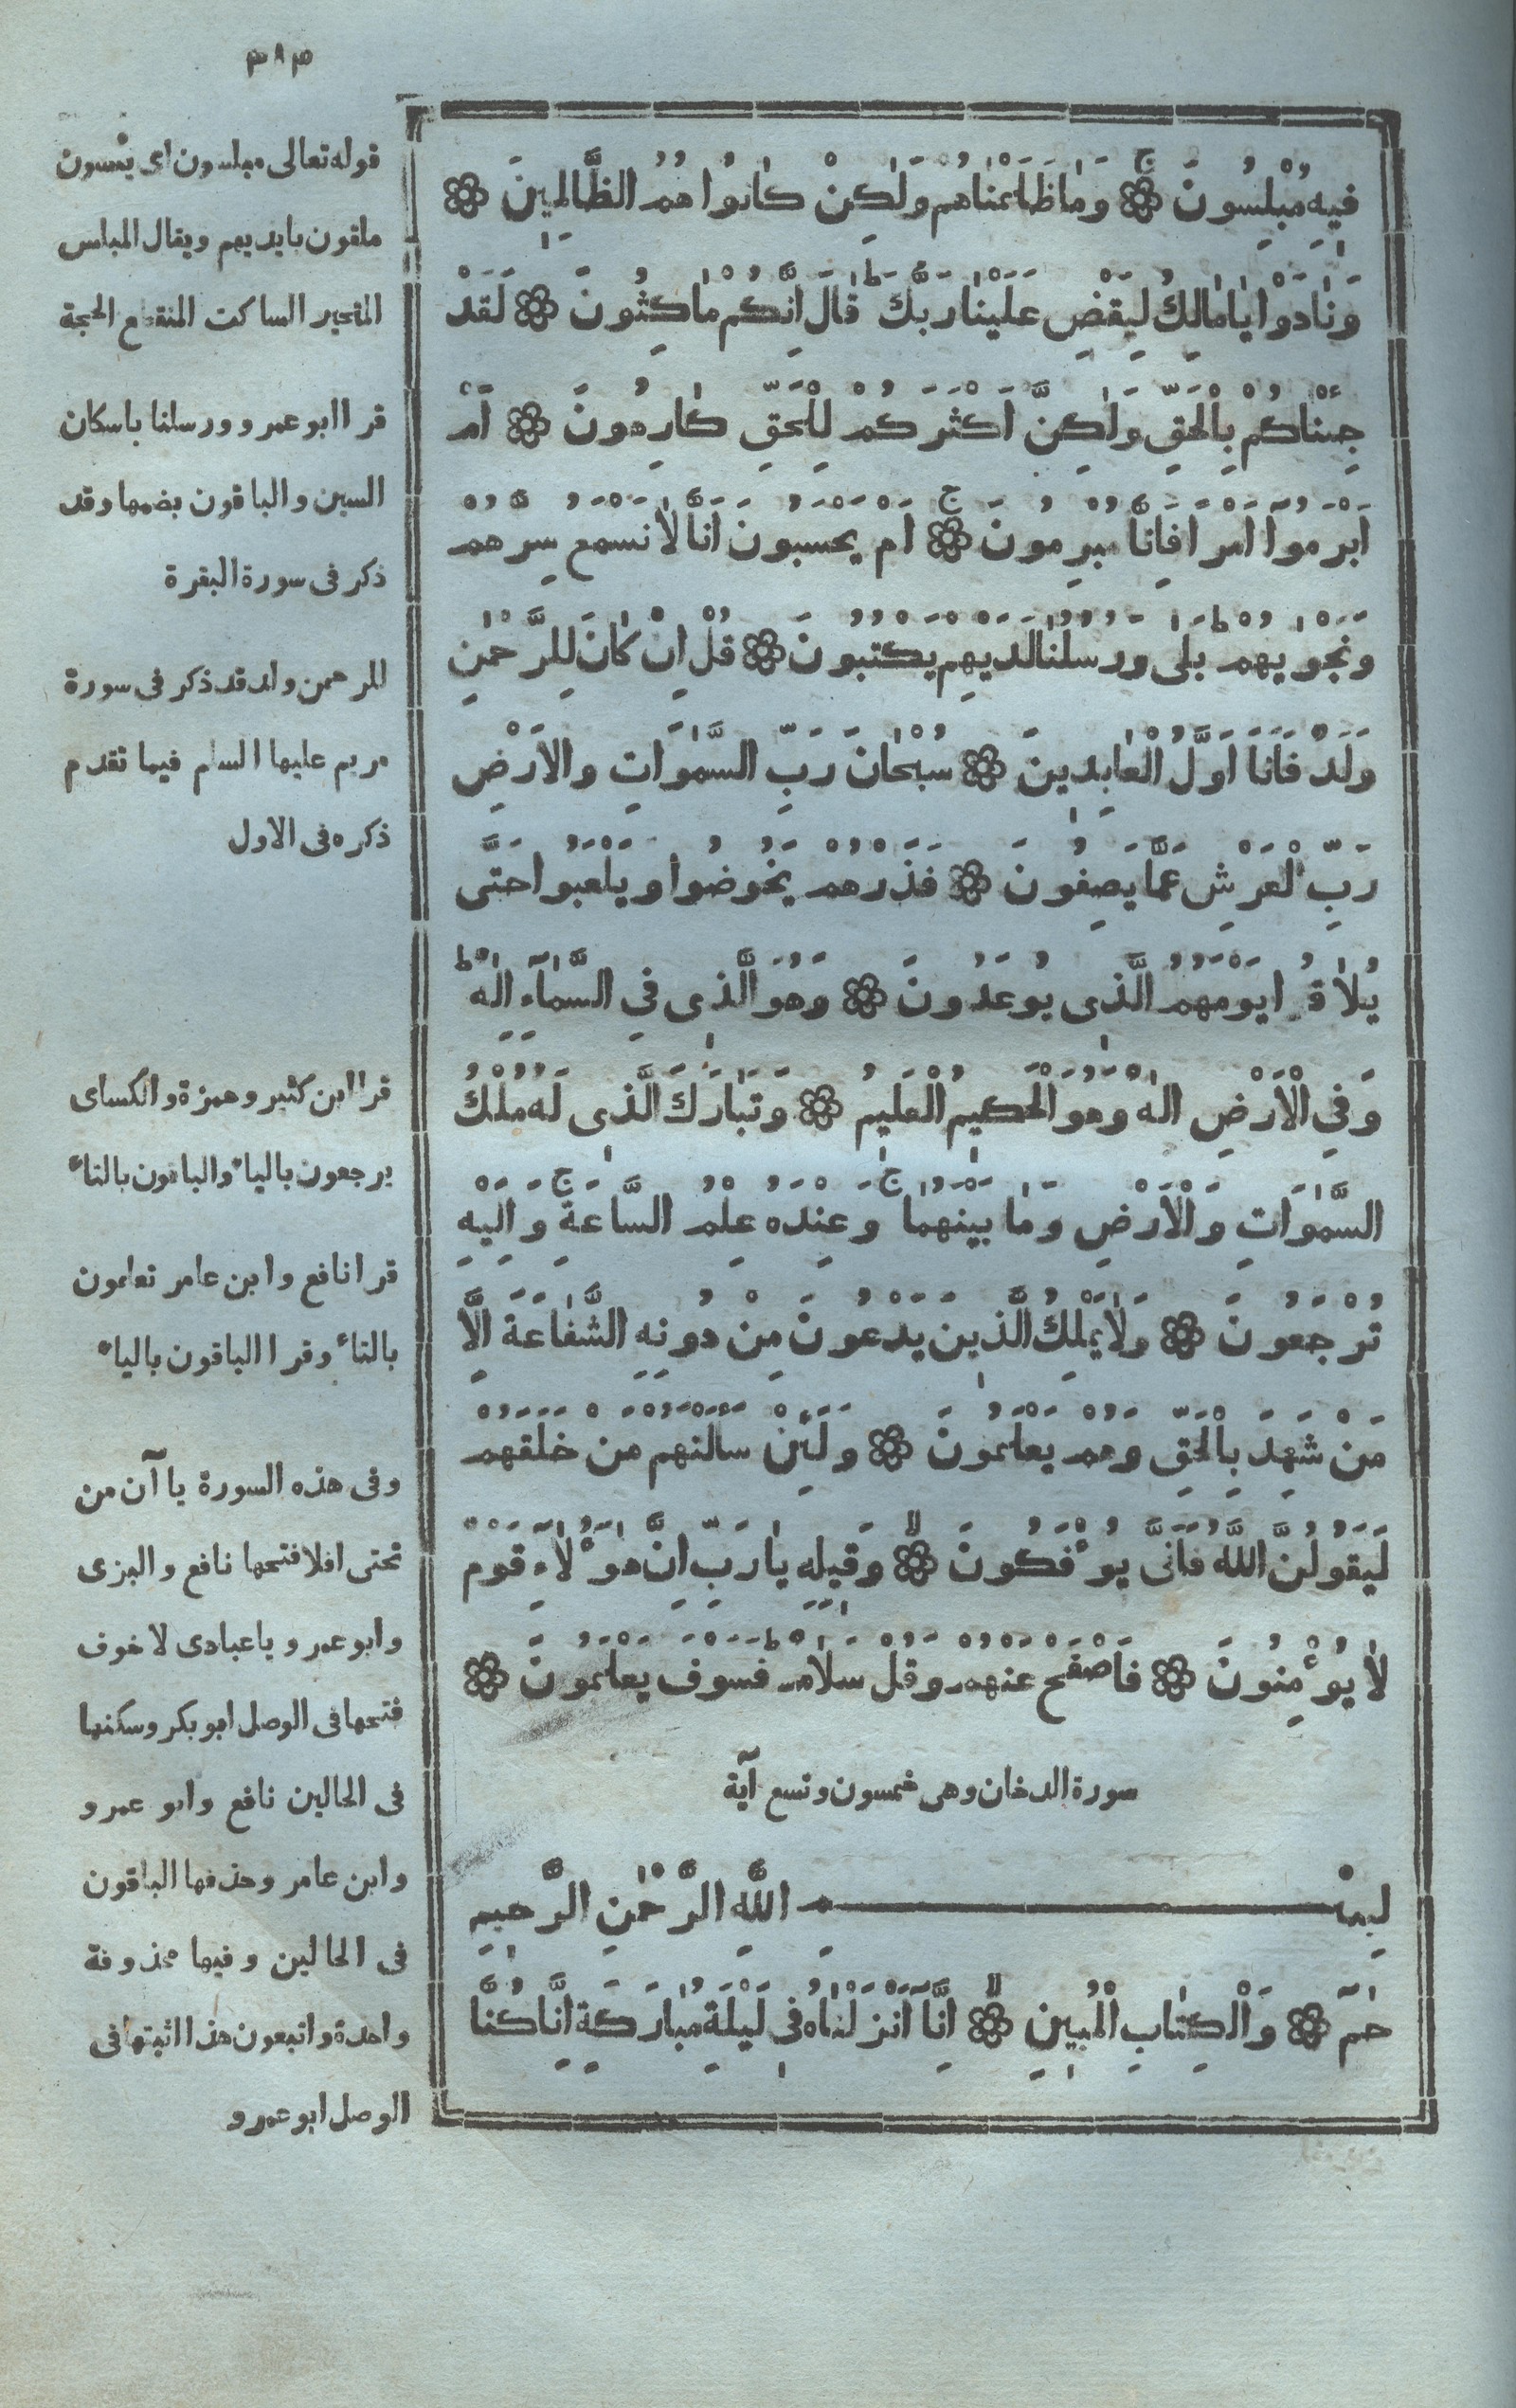 ٣٨٣
فِيهِ مُبْلِسُونَ ۞ وَمٰا ظَلَمْنٰاهُمْ وَلٰكِنْ كٰانُوا هُمُ الظّٰالِمِينَ ۞
وَنٰادَوْا يٰا مٰالِكُ لِيَقْضِ عَلَيْنٰا رَبُّكَ ط قٰالَ اِنَّكُمْ مٰاكِثُونَ ۞ لَقَدْ
جِئْنٰاكُمْ بِالْحَقِّ وَلٰكِنَّ اَكْثَرَكُمْ لِلْحَقِّ كٰارِهُونَ ۞ اَمْ
اَبْرَمُوٓا اَمْرًا فَاِنّٰا مُبْرِمُونَ ۞ اَمْ يَحْسَبُونَ اَنّٰا لٰا نَسْمَعُ سِرَّهُمْ
وَنَجْوٰيهُمْ ط بَلٰى وَرُسُلُنٰا لَدَيْهِمْ يَكْتُبُونَ ۞ قُلْ اِنْ كٰانَ لِلرَّحْمٰنِ
وَلَدٌ فَاَنَا اَوَّلُ الْعٰابِدِينَ ۞ سُبْحٰانَ رَبِّ السَّمٰوَاتِ وَالْاَرْضِ
رَبِّ الْعَرْشِ عَمّٰا يَصِفُونَ ۞ فَذَرْهُمْ يَخُوضُوا وَيَلْعَبُوا حَتّٰى
يُلٰاقُوا يَوْمَهُمُ الَّذِى يُوعَدُونَ ۞ وَهُوَ الَّذِى فِى السَّمٰٓاءِ اِلٰهٌ ط
وَفِى الْاَرْضِ اِلٰهٌ وَهُوَ الْحَكِيمُ الْعَلِيمُ ۞ وَتَبٰارَكَ الَّذِى لَهُ مُلْكُ
السَّمٰوَاتِ وَالْاَرْضِ وَمٰا بَيْنَهُمٰا ج وَعِنْدَهُ عِلْمُ السَّاعَةِ ج وَاِلَيْهِ
تُرْجَعُونَ ۞ وَلٰا يَمْلِكُ الَّذِينَ يَدْعُونَ مِنْ دُونِهِ الشَّفٰاعَةَ اِلَّا
مَنْ شَهِدَ بِالْحَقِّ وَهُمْ يَعْلَمُونَ ۞ وَلَئِنْ سَاَلْتَهُمْ مَنْ خَلَقَهُمْ
لَيَقُولُنَّ اللّٰهُ فَاَنّٰى يُؤْفَكُونَ ۞ وَقِيلِهِ يٰا رَبِّ اِنَّ هٰؤُلٰٓاءِ قَوْمٌ
لٰا يُؤْمِنُونَ ۞ فَاصْفَحْ عَنْهُمْ وَقُلْ سَلٰامٌ ط فَسَوْفَ يَعْلَمُونَ ۞
سورة الدخان وهى خمسون وتسع آية
بِسْمِ اللّٰهِ الرَّحْمٰنِ الرَّحِيمِ
حٰمٓ ۞ وَالْكِتٰابِ الْمُبِينِ ۞ اِنّٰٓا اَنْزَلْنٰاهُ فِى لَيْلَةٍ مُبٰارَكَةٍ اِنّٰا كُنّٰا
قوله تعالى مبلسون اى يئسون
ملقون بايديهم ويقال المبلس
المتحير الساكت المنقطع الحجة
قرا ابو عمرو ورسلنا باسكان
السين والباقون بضمها وقد
ذكر فى سورة البقرة
للرحمن ولد قد ذكر فى سورة
مريم عليها السلم فيما تقدم
ذكره فى الاول
قرا ابن كثير وحمزة والكساى
يرجعون بالياء والباقون بالتاء
قرا نافع وابن عامر تعلمون
بالتاء وقرا الباقون بالياء
وفى هذه السورة ياآن من
تحتى افلا فتحها نافع والبزى
وابو عمرو ياعبادى لا خوف
فتحها فى الوصل ابو بكر وسكنها
فى الحالين نافع وابو عمرو
وابن عامر وحذفها الباقون
فى الحالين وفيها محذوفة
واحدة واتبعون هذا اثبتها فى
الوصل ابو عمرو